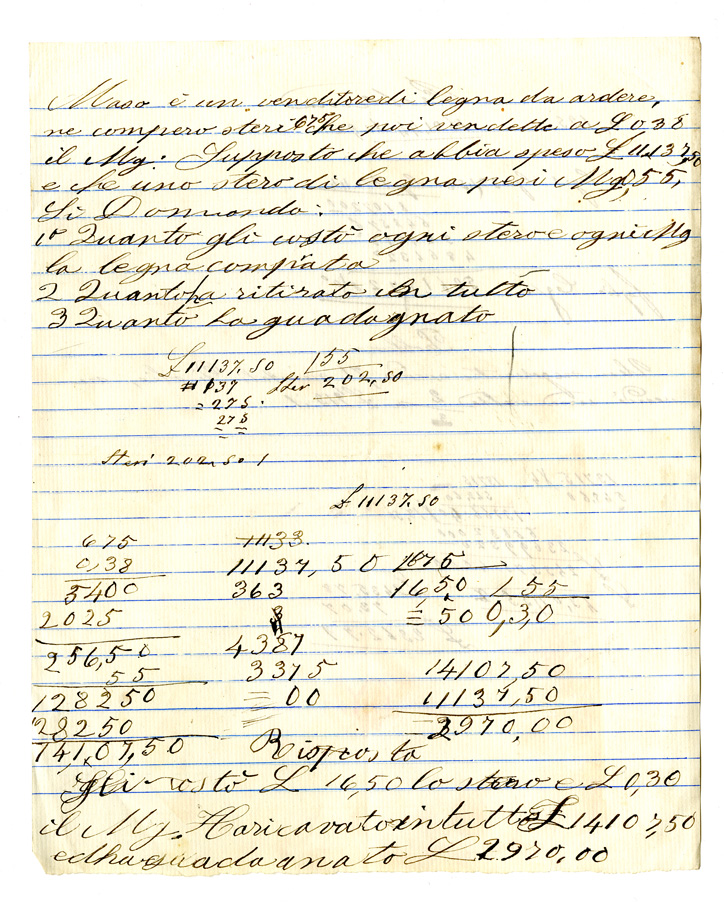 Maso è un venditore di legna da ardere,
ne compero steri 675 che poi vendette a £ 0,38
il Mg: Supposto che abbia speso £ 11137,50
e che uno stero di legna pesi Mg, 55,
Si Domanda:
1º Quanto gli costò ogni stero e ogni Mg
la legna comprata
2 Quanto ha ritirato in tutto
3 Quanto ha guadagnato
£ 11137.50 / 55
11137 Ster 202,50
= 275.
275
Steri 202.50 /
£ 11137.50
675 1133.
0,38 11137,50 1675
5400 363 16,50 / 55
2025 = 50 0,30
256,50 4387
55 3375 14107,50
128250 = 00 11137,50
128250 = 2970,00
14107,50 Risposta
Gli costò £ 16,50 lo stero e £ 0,30
il Mg. Ha ricavato in tutto £ 14107,50
ed ha guadagnato £ 2970.00